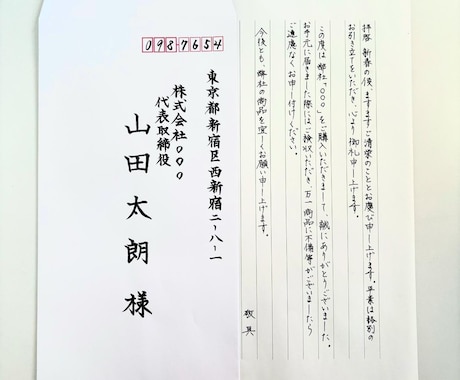 0987654
東京都新宿区西新宿二-八-一
株式会社○○○
代表取締役
山田太朗様
拝啓 新春の候、ますますご清栄のこととお慶び申し上げます。平素は格別の
お引き立てをいただき、心より御礼申し上げます。
この度は弊社「○○○」をご購入いただきまして、誠にありがとうございました。
お手元に届きました際にはご検収いただき、万一商品に不備等がございましたら
ご遠慮なくお申し付けください。
今後とも、弊社の商品を宜しくお願い申し上げます。
敬具